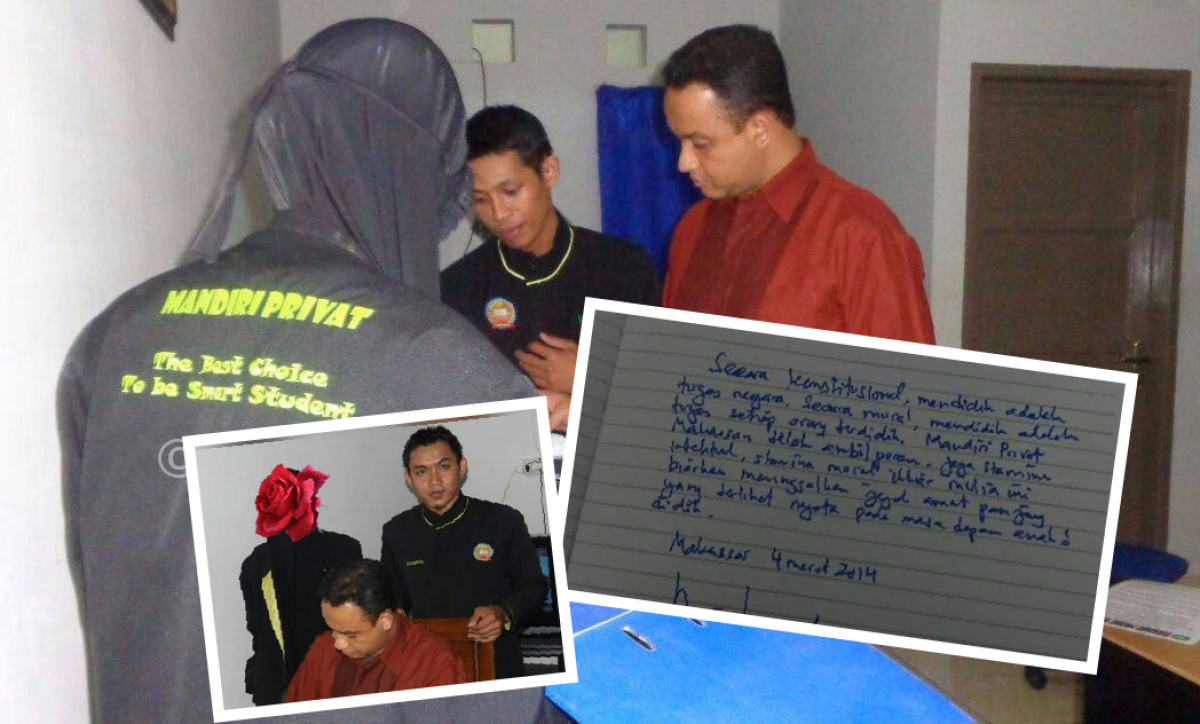 MANDIRI PRIVAT
The Best Choice
To be Smart Student
©
Secara konstitusional, mendidik adalah
tugas negara. Secara moral, mendidik adalah
tugas setiap orang terdidik. Mandiri Privat
Makassar telah ambil peran. Jaga stamina
intelektual, stamina moral. Ikhtiar mulia ini
biarkan meninggalkan jejak amat panjang
yang terlihat nyata pada masa depan anak2
didik.
Makassar 4 maret 2014